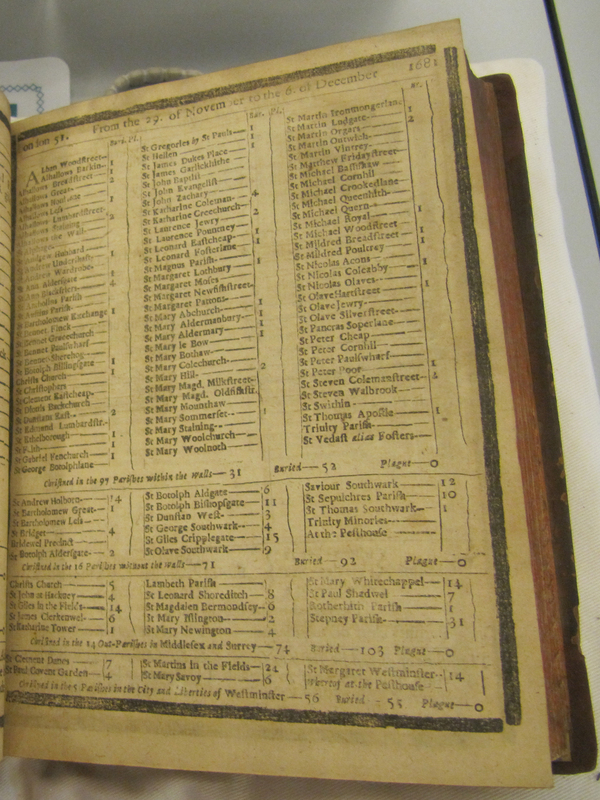 on 51. From the 29. of November to the 6. of December 1681
Bur. Pl.
ALban Woodstreet 1
Alhallows Barkin 1
Alhallows Breadstreet 2
Alhallows Great
Alhallows Lumbardstreet
St Andrew Hubbard
St Andrew Undershaft
Wardrobe
St Ann Aldersgate
St Ann Blackfriers 4
Parish
Parish
St Bartholomew Exchange 1
St Bennet Finck
St Bennet Gracechurch
St Bennet Paulswharf
St Bennet Sherehog
St Botolph Billingsgate 1
Christs Church
St Christophers
St Clement Eastcheap
St Dionis Backchurch
St Dunstans East 2
St Edmund Lumbardstr. 1
St Ethelborough 1
St Faith
St Gabriel Fenchurch 1
St George Botolphlane
Bur. Pl.
St Gregories by St Pauls 1
St Hellen
St James Dukes Place
St James Garlickhithe
St John Baptist
St John Evangelist
St John Zachary
St Katharine Coleman 4
St Katharine Creechurch
St Laurence Jewry 2
St Laurence Pountney
St Leonard Eastcheap 1
St Leonard Fosterlane
St Magnus Parish
St Margaret Lothbury
St Margaret Moses
St Margaret Newfishstreet
St Margaret Pattons
St Mary Abchurch 1
St Mary Aldermanbury 1
St Mary Aldermary 1
St Mary le Bow
St Mary Bothaw
St Mary Colechurch
St Mary Hill 2
St Mary Magd. Milkstreet
St Mary Magd. Oldfishstr.
St Mary Mounthaw
St Mary Sommerset 1
St Mary Staining
St Mary Woolchurch
St Mary Woolnoth
Bu.
St Martin Ironmongerlan. 1
St Martin Ludgate 2
St Martin Orgars
St Martin Outwich
St Martin Vintrey
St Matthew Fridaystreet
St Michael Bassishaw
St Michael Cornhil
St Michael Crookedlane
St Michael Queenhith
St Michael Quern
St Michael Royal
St Michael Woodstreet
St Mildred Breadstreet
St Mildred Poultrey
St Nicolas Acons
St Nicolas Coleabby
St Nicolas Olaves
St Olave Hartstreet
St Olave Jewry
St Olave Silverstreet
St Pancras Soperlane
St Peter Cheap
St Peter Cornhil
St Peter Paulswharf
St Peter Poor 1
St Steven Colemanstreet
St Steven Walbrook
St Swithin
St Thomas Apostle 1
Trinity Parish
St Vedast alias Fosters
Christned in the 97 Parishes within the Walls 31 Buried 52 Plague 0
St Andrew Holborn 14
St Bartholomew Great 1
St Bartholomew Less
St Bridget 4
Bridewel Precinct
St Botolph Aldersgate 2
St Botolph Aldgate 6
St Botolph Bishopsgate 11
St Dunstan West 3
St George Southwark 4
St Giles Cripplegate 15
St Olave Southwark 9
Saviour Southwark 12
St Sepulchres Parish 10
St Thomas Southwark 1
Trinity Minories
At the Pesthouse
Christned in the 16 Parishes without the Walls 71 Buried 92 Plague 0
Christs Church 5
St John at Hackney 4
St Giles in the Fields 14
St James Clerkenwel 6
St Katharine Tower 1
Lambeth Parish
St Leonard Shoreditch 8
St Magdalen Bermondsey 6
St Mary Islington 2
St Mary Newington 4
St Mary Whitechappel 14
St Paul Shadwel 7
Rotherhith Parish 1
Stepney Parish 31
Christned in the 14 Out-Parishes in Middlesex and Surrey 74 Buried 103 Plague 0
St Clement Danes 7
St Paul Covent Garden 4
St Martins in the Fields 24
St Mary Savoy 6
St Margaret Westminster 14
Whereof at the Pesthouse
Christned in the 5 Parishes in the City and Liberties of Westminster 56 Buried 55 Plague 0